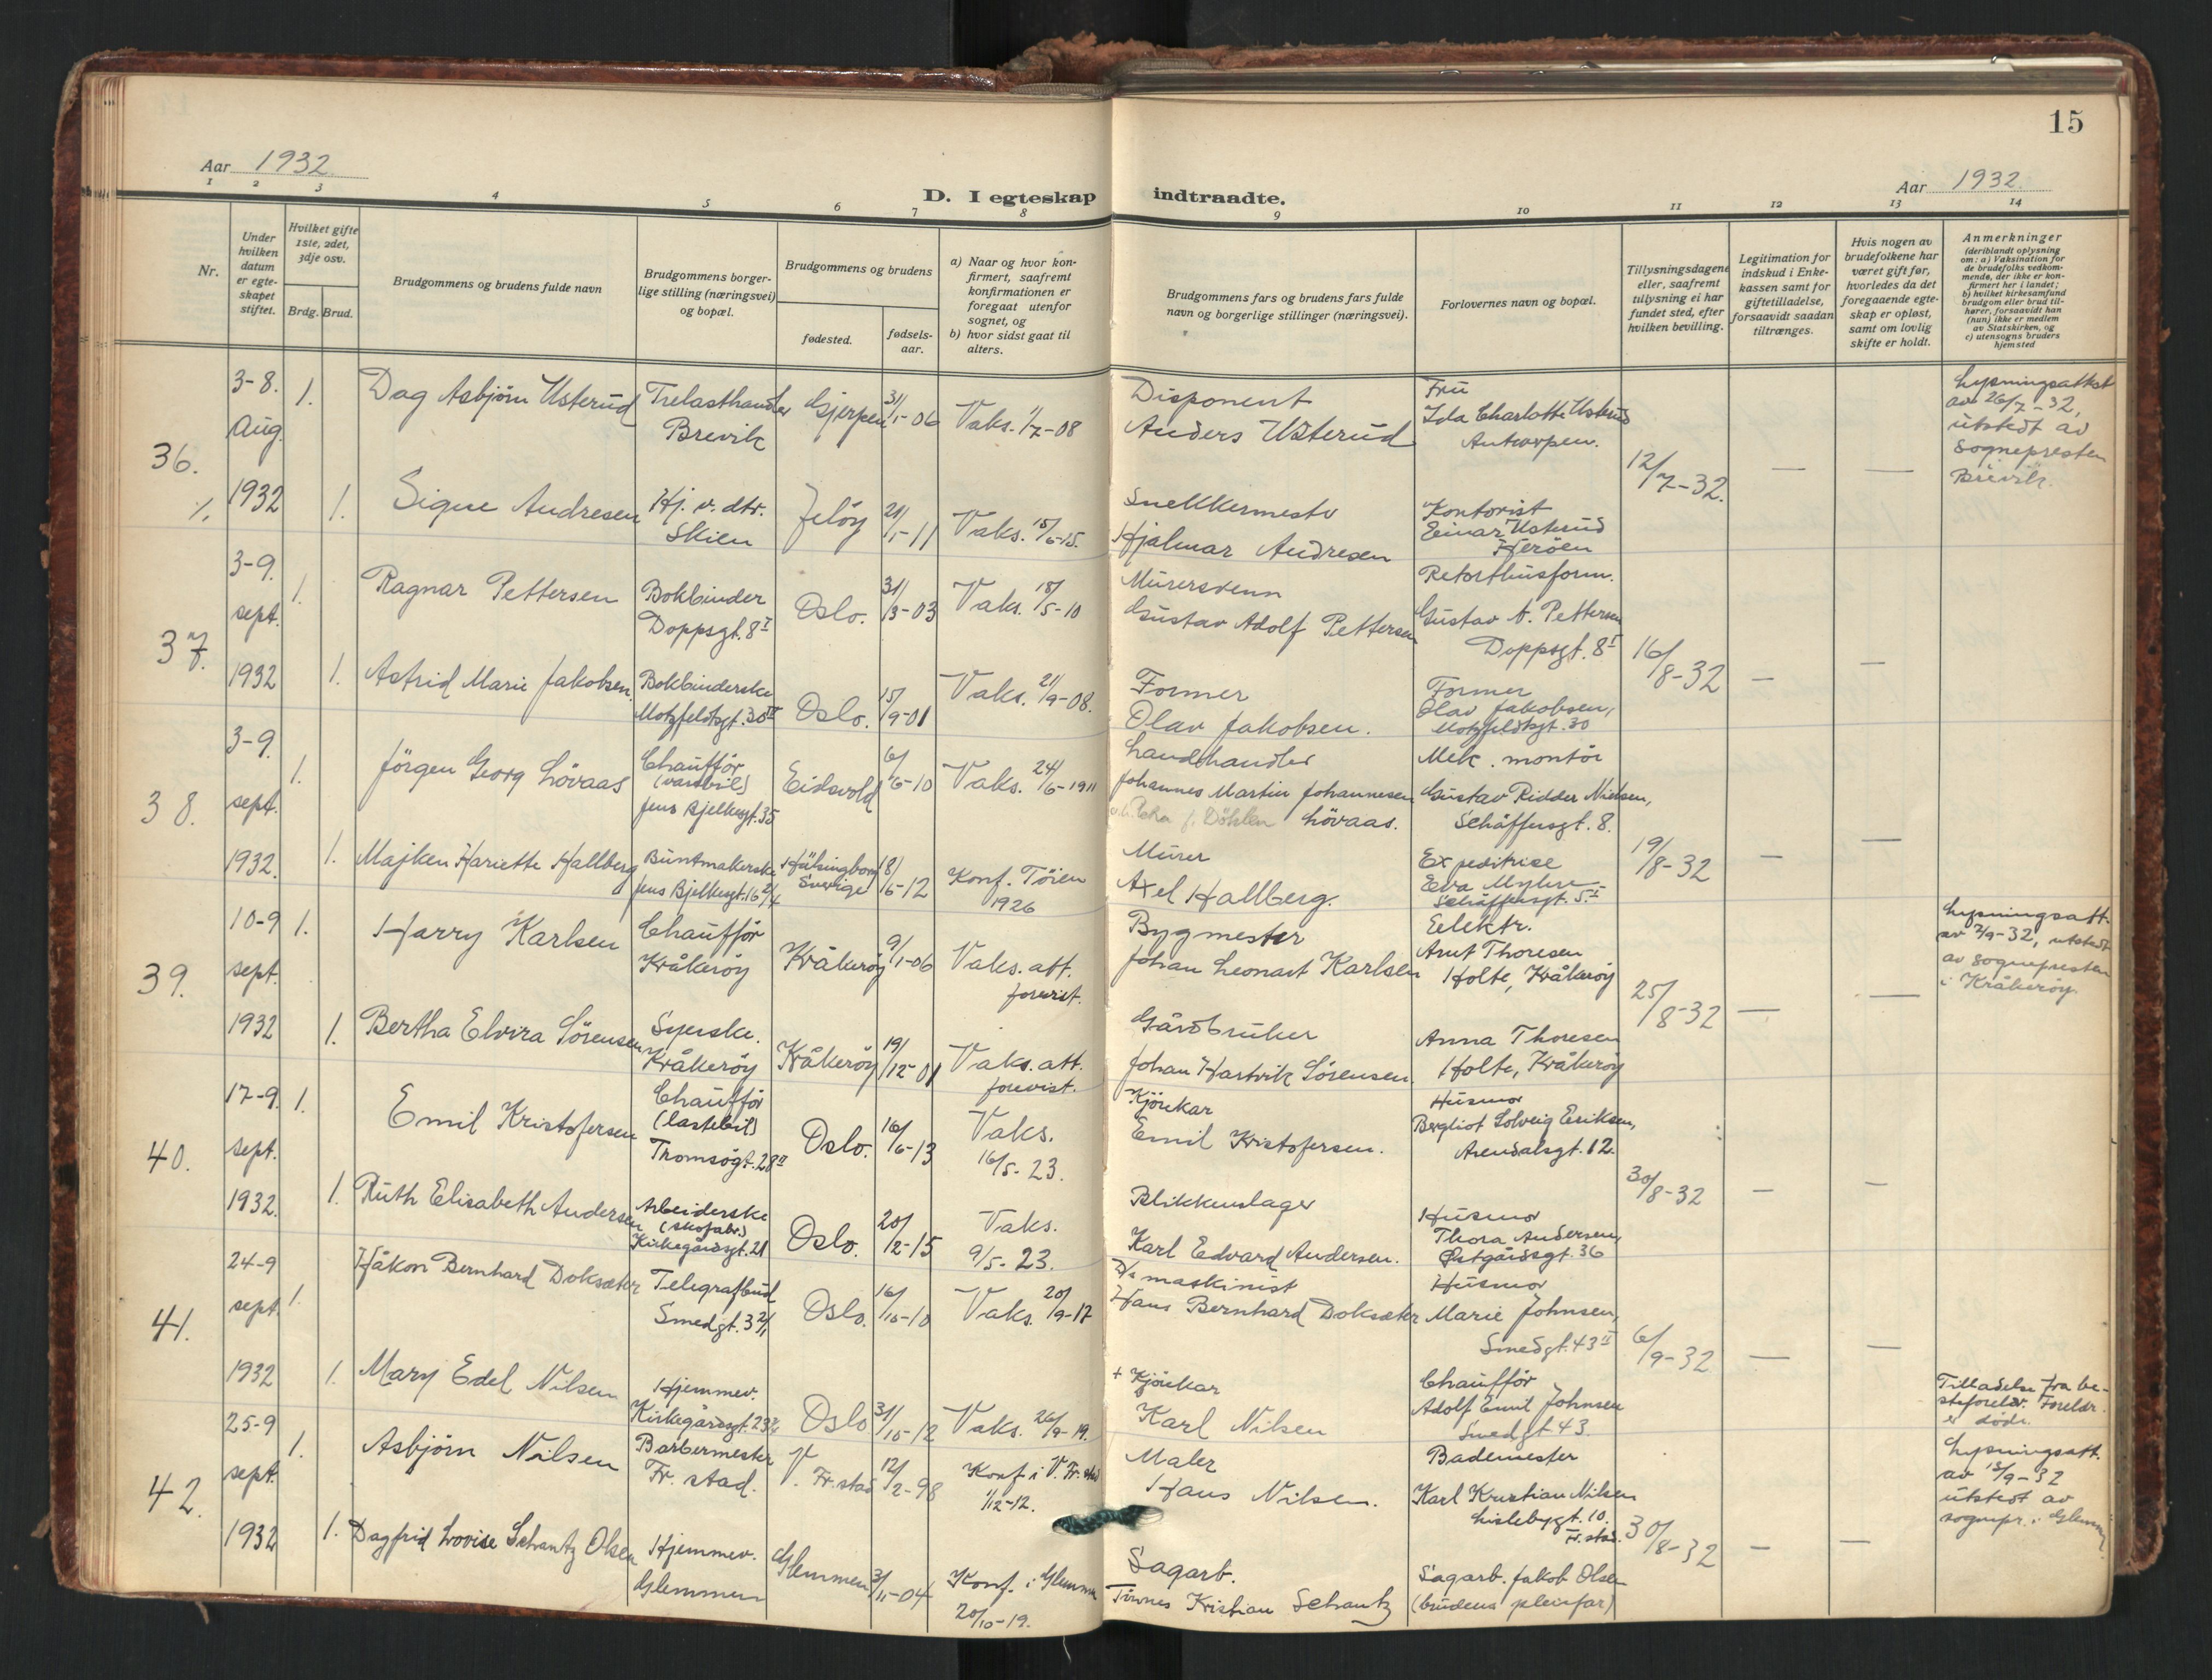 15
Aar 1932.
Aar 1932.
D. I egteskap indtraadte.
1 2 3 4 5 6 7 8 9 10 11 12 13 14
Nr.
Under hvilken datum er egteskapet stiftet.
Hvilket gifte 1ste, 2det, 3dje osv.
Brdg. Brud.
Brudgommens og brudens fulde navn
Brudgommens borgerlige stilling (næringsvei) og bopæl.
Brudgommens og brudens
fødested.
fødselsaar.
a) Naar og hvor konfirmert, saafremt konfirmationen er foregaat utenfor sognet, og
b) hvor sidst gaat til alters.
Brudgommens fars og brudens fars fulde navn og borgerlige stillinger (næringsvei).
Forlovernes navn og bopæl.
Tillysningsdagene eller, saafremt tillysning ei har fundet sted, efter hvilken bevilling.
Legitimation for indskud i Enkekassen samt for giftetilladelse, forsaavidt saadan tiltrænges.
Hvis nogen av brudefolkene har været gift før, hvorledes da det foregaaende egteskap er opløst, samt om lovlig skifte er holdt.
Anmerkninger
(deriblandt oplysning om: a) Vaksination for de brudefolks vedkommende, der ikke er konfirmert her i landet;
b) hvilket kirkesamfund brudgom eller brud tilhører, forsaavidt han (hun) ikke er medlem av Statskirken, og
c) utensogns bruders hjemsted
36.
3-8. Aug. 1932
1. Dag Asbjörn Usterud
Trelasthandler Brevik
Gjerpen 31/1-06
Vaks. 1/7-08
Disponent Anders Usterud
Fru Ida Charlotte Usterud Antwerpen.
12/7-32. — —
Lysningsattest av 26/7-32, utstedt av sognepresten Brevik.
1. Signe Andresen
Hj. v. dtr. Skien
Jelöy 21/1-11
Vaks. 15/6-15.
Snekkermestr Hjalmar Andresen
Kontorist Einar Usterud Heröen
37.
3-9. sept. 1932
1. Ragnar Pettersen
Bokbinder Doppsgt. 8 I
Oslo. 31/3-03
Vaks. 18/5-10
Murersvenn Gustav Adolf Pettersen
Retorthusform. Gustav A. Pettersen Doppsgt. 8 I
16/8-32 — —
1. Astrid Marie Jakobsen.
Bokbinderske Motzfeldtsgt. 30 IV
Oslo. 15/9-01
Vaks. 21/9-08.
Former Olav Jakobsen.
Former Olav Jakobsen, Motzfeldtsgt. 30
38.
3-9. sept. 1932.
1. Jörgen Georg Lövaas
Chaufför (varebil) Jens Bjelkesgt. 35
Eidsvold 6/6-10
Vaks. 24/6-1911
Landhandler Johannes Martin Johannesen Lövaas.
Mek. montör Gustav Ridder Nielsen, Schäffersgt. 8.
19/8-32 — —
1. Majken Hariette Hallberg
Buntmakerske Jens Bjelkesgt. 16 2/4
Hälsingborg Sverige 18/6-12
Konf. Töien 1926
Murer Axel Hallberg.
Expeditrise Eva Myhre Schäffersgt. 5 I
39.
10-9 sept. 1932
1. Harry Karlsen
Chaufför Kråkeröy
Kråkeröy 9/1-06
Vaks. att. forevist.
Bygmester Johan Leonart Karlsen
Eelektr. Arnt Thoresen Holte, Kråkeröy
25/8-32 — —
Lysningsatt. av 7/9-32, utstedt av sognepresten i Kråkeröy.
1. Bertha Elvira Sörensen
Syerske. Kråkeröy
Kråkeröy 19/12-01
Vaks. att. forevist.
Gårdbruker Johan Hartvik Sörensen.
Anna Thoresen Holte, Kråkeröy
40.
17-9. sept. 1932.
1. Emil Kristofersen
Chaufför (lastebil) Thomsøgt. 28 II
Oslo. 16/6-13
Vaks. 16/5-23.
Kjörekar Emil Kristofersen.
Husmor Bergliot Solveig Eriksen, Arendalsgt. 12.
30/8-32 — —
1. Ruth Elisabeth Andersen
Arbeiderske (skofabr.) Kirkegårdsgt. 21
Oslo. 20/12-15
Vaks. 9/5-23.
Blikkenslager Karl Edvard Andersen.
Husmor Thora Andersen, Østgårdsgt. 36
41.
24-9 sept. 1932
1. Håkon Bernhard Doksæter
Telegrafbud Smedgt. 3 2/1
Oslo. 16/10-10
Vaks. 20/9-17
D/s maskinist Hans Bernhard Doksæter
Husmor Marie Johnsen, Smedgt. 43 II
6/9-32 — —
1. Mary Edel Nilsen
Hjemmev. Kirkegårdsgt. 23
Oslo 31/10-12
Vaks. 26/9-19.
+ Kjörekar Karl Nilsen
Chaufför Adolf Emil Johnsen Smedgt 43.
Tilladelse fra besteforeldr. Foreldr. er döde.
42.
25-9 sept. 1932
1. Asbjörn Nilsen
Barbermester Fr. stad.
V. Fr. stad 12/2-98
Konf i V. Fr. stad 1/12-12.
Maler Hans Nilsen.
Bademester Karl Kristian Nilsen Lislebygt. 10. Fr. stad.
30/8-32 — —
Lysningsatt. av 15/9-32 utstedt av sognepr. i Glemmen
1. Dagfrid Lovise Schantz Olsen
Hjemmev. Glemmen
Glemmen 3/11-04
Konf. i Glemmen 20/10-19.
Sagarb. Kristian Schantz
Sagarb. Jakob Olsen (brudens pleiefar)